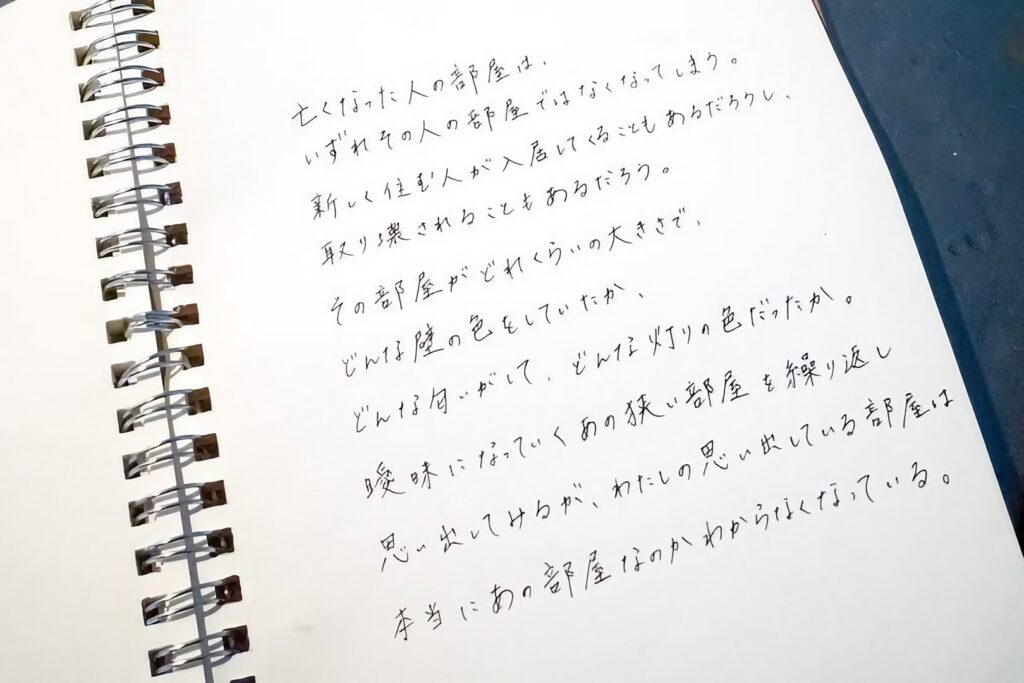 亡くなった人の部屋は、
いずれその人の部屋ではなくなってしまう。
新しく住む人が入居してくることもあるだろうし、
取り壊されることもあるだろう。
その部屋がどれくらいの大きさで、
どんな壁の色をしていたか、
どんな匂いがして、どんな灯りの色だったか。
曖昧になっていくあの狭い部屋を繰り返し
思い出してみるが、わたしの思い出している部屋は
本当にあの部屋なのかわからなくなっている。